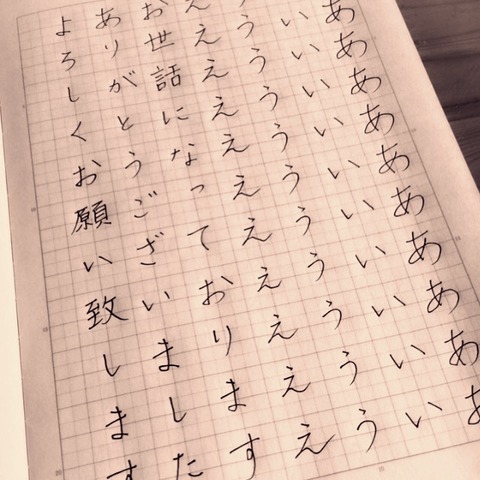 ああああああああああ
いいいいいいいいいい
うううううううううう
えええええええええええ
お世話になっております
ありがとうございました
よろしくお願い致します